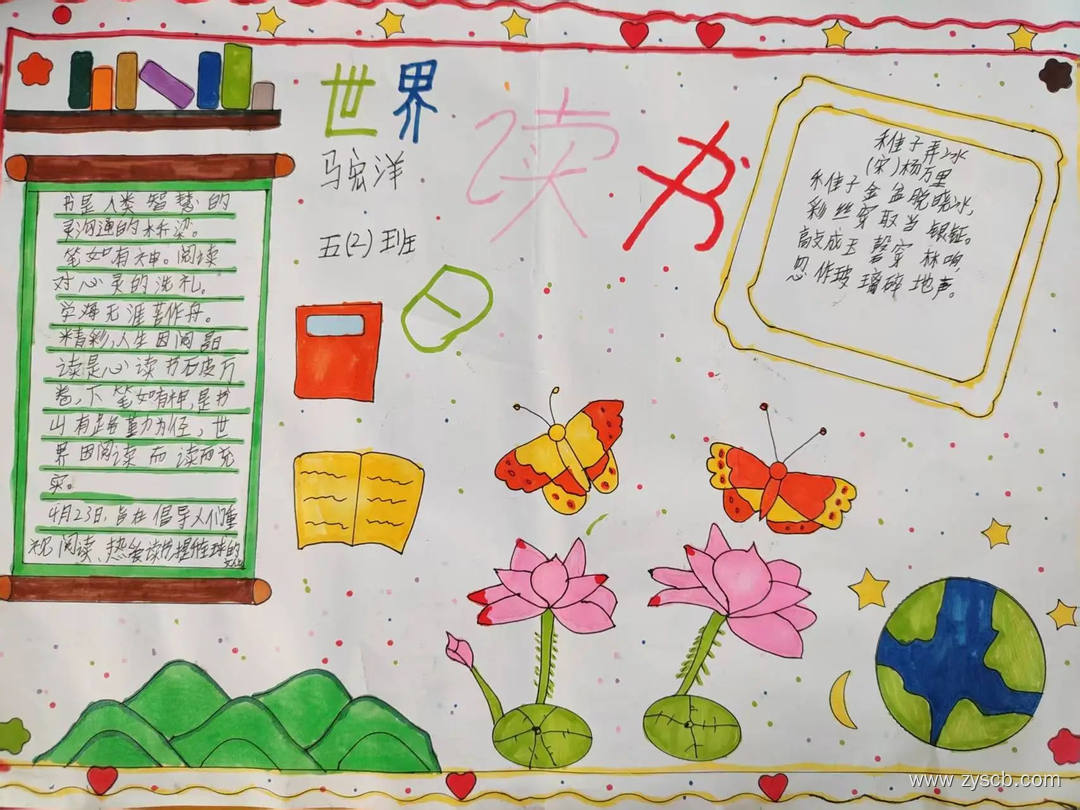 世界
读书
日
马宏洋
五(2)班
书是人类智慧的
灵沟通的桥梁。
笔如有神。阅读
对心灵的洗礼。
学海无涯苦作舟。
精彩,人生因阅
读是心读书破万
卷,下笔如有神,是书
山有路勤为径,世
界因阅读而读而充
实。
4月23日,旨在倡导人们重
视阅读、热爱读
稚子弄冰
(宋)杨万里
稚子金盆脱晓冰,
彩丝穿取当银钲。
敲成玉磬穿林响,
忽作玻璃碎地声。
www.zyscb.com